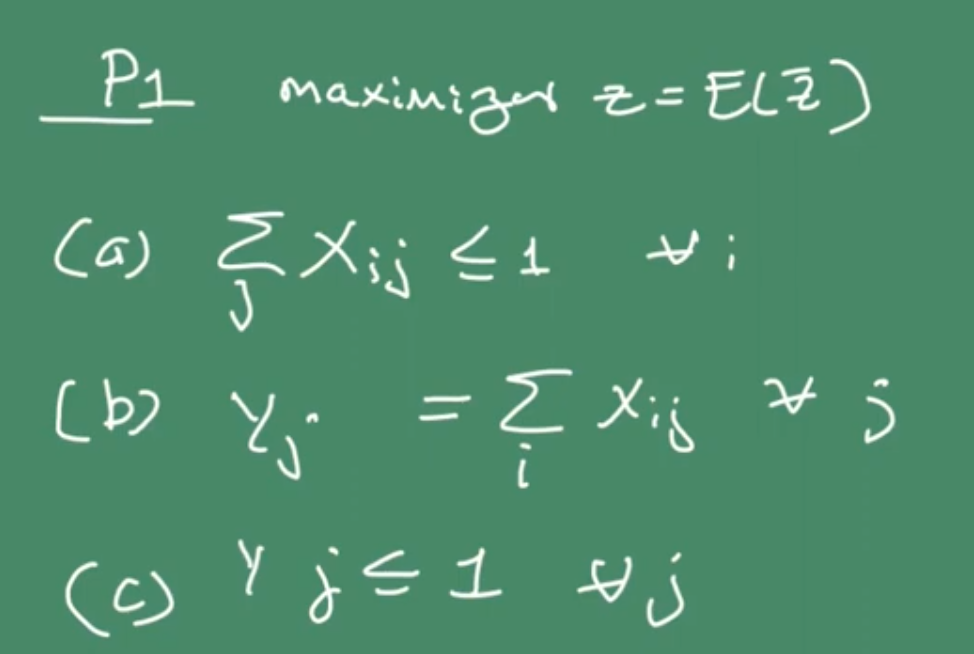 P1 maximizer z = E(z̄)
(a) ∑_j X_ij ≤ 1 ∀ i
(b) Y_j = ∑_i X_ij ∀ j
(c) Y_j ≤ 1 ∀ j